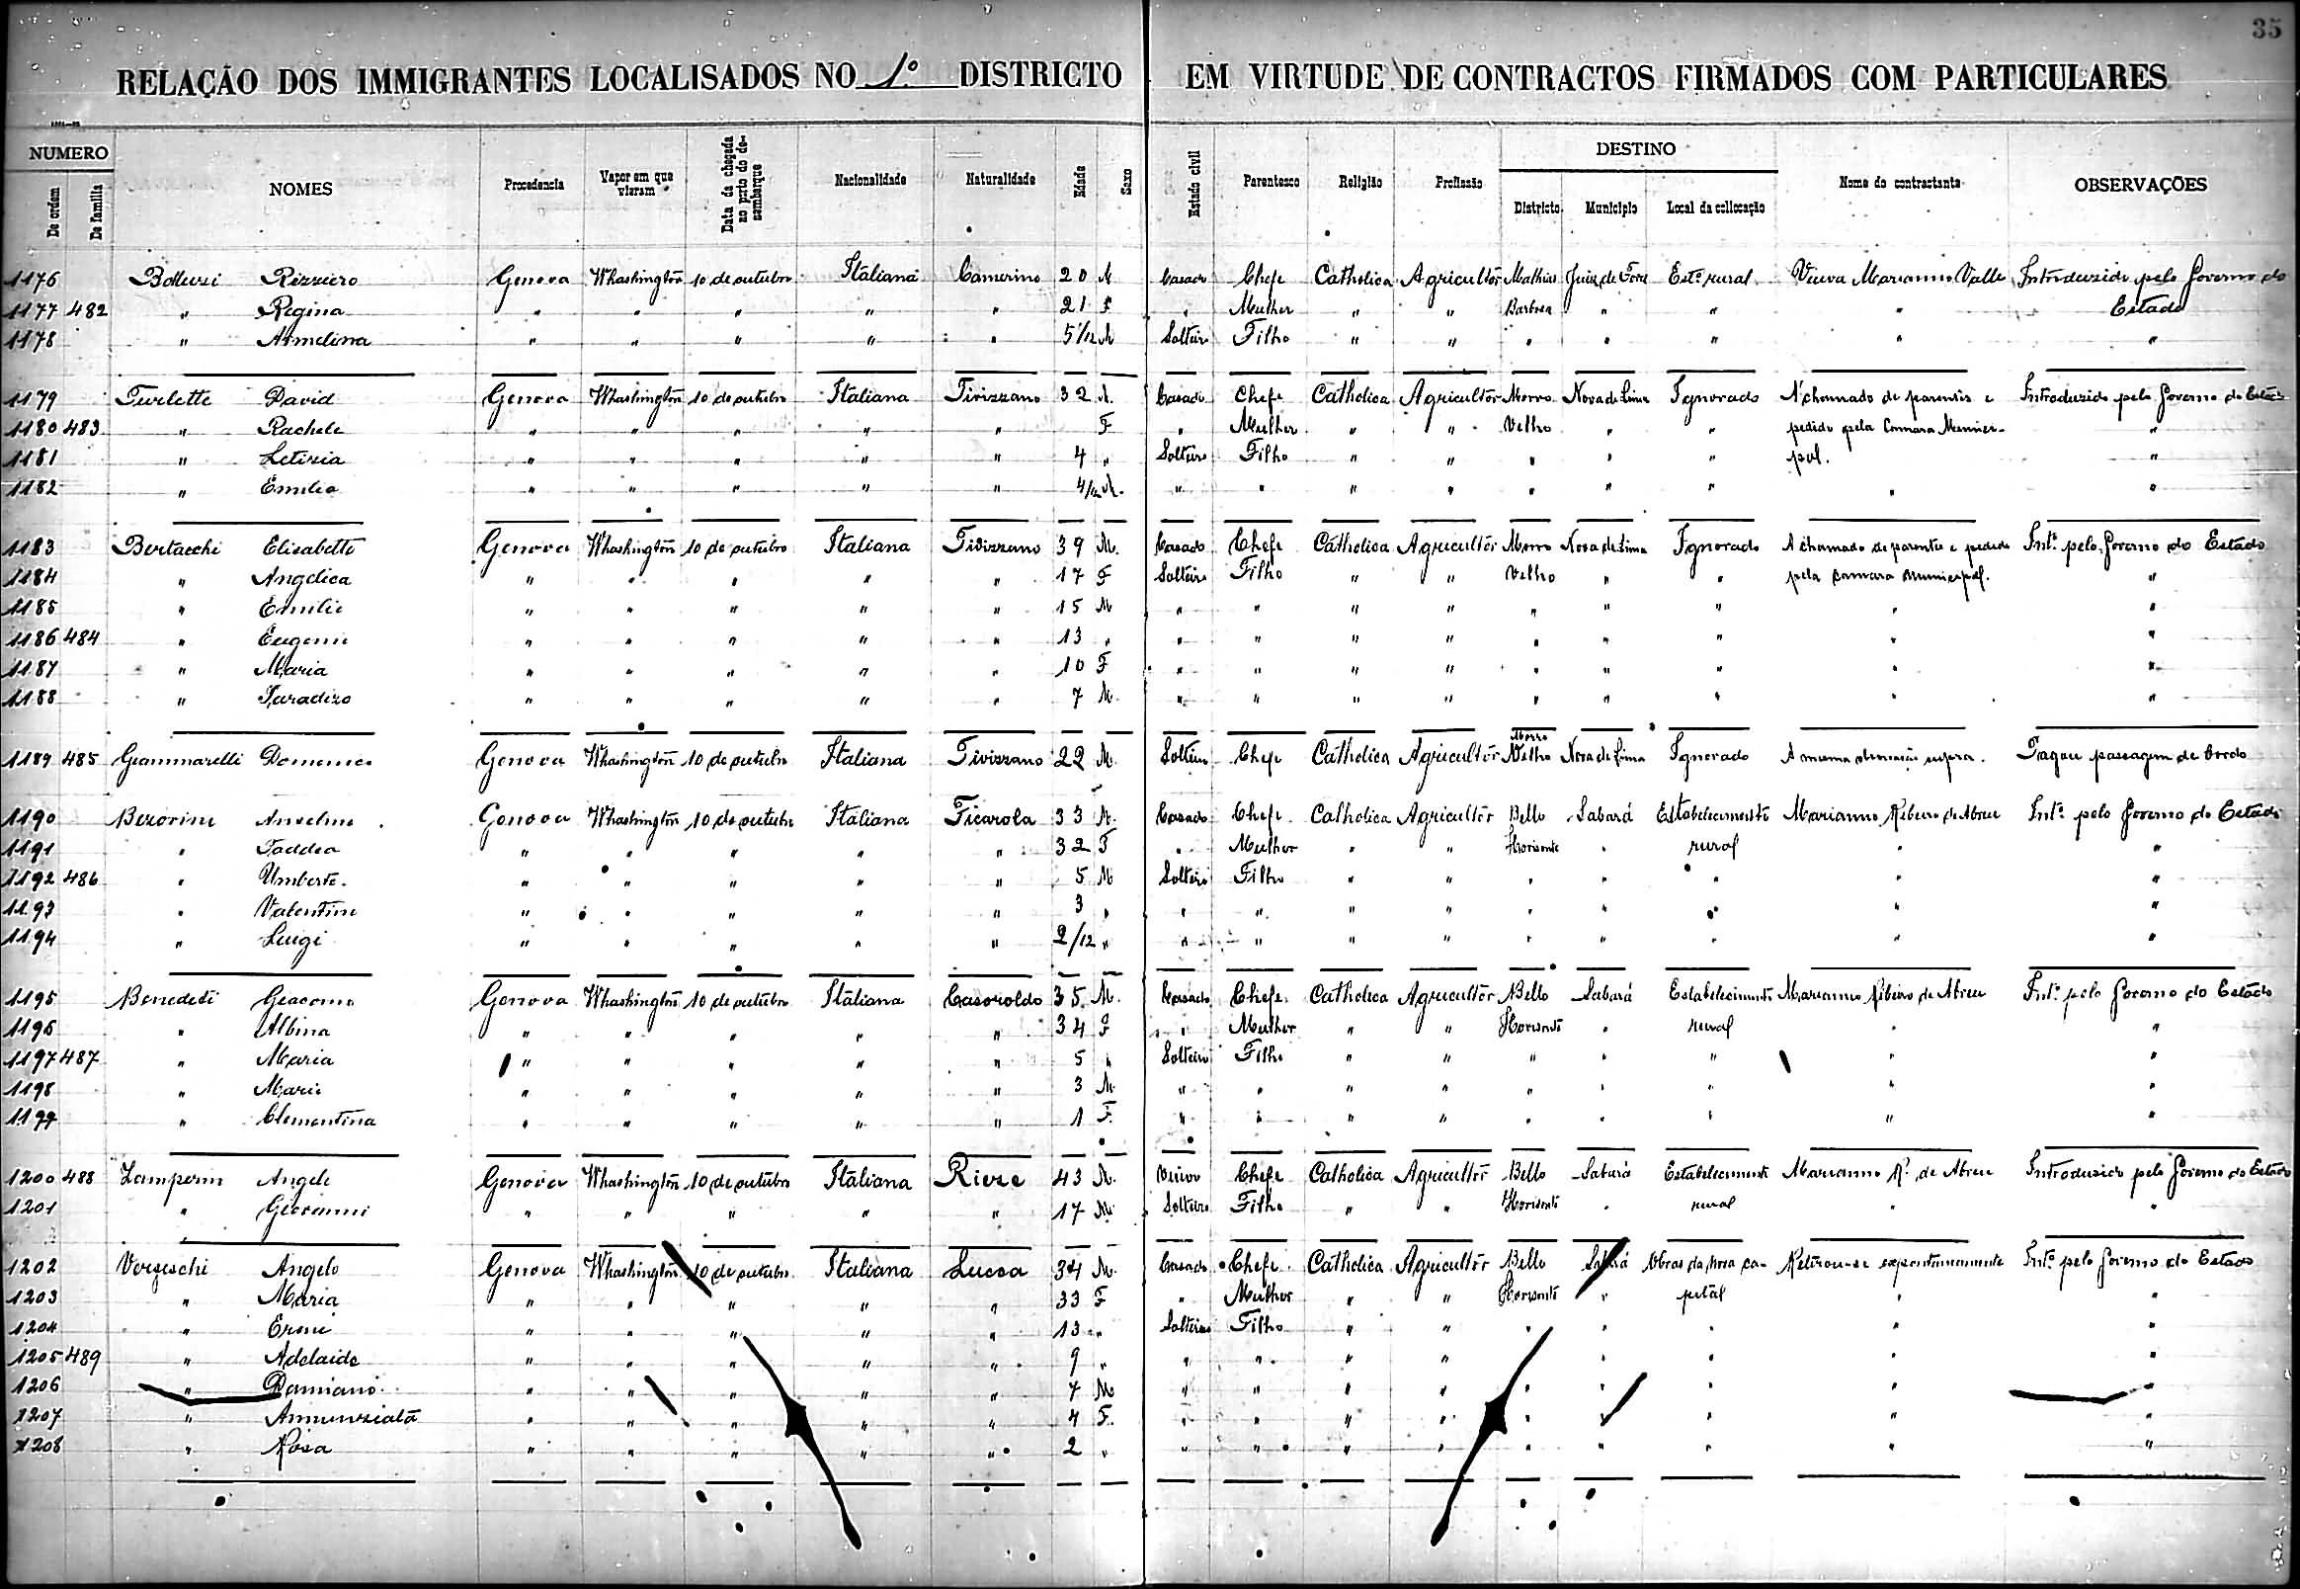 35
RELAÇÃO DOS IMMIGRANTES LOCALISADOS NO 1º DISTRICTO EM VIRTUDE DE CONTRACTOS FIRMADOS COM PARTICULARES
NUMERO DESTINO
De ordem De familia NOMES Procedencia Vapor em que vieram Data da chegada ao porto do desembarque Nacionalidade Naturalidade Edade Sexo Estado civil Parentesco Religião Profissão Districto Municipio Local da collocação Nome do contractante OBSERVAÇÕES
1176 Rizziero Genova Whashington 10 de outubro Italiana Camerino 20 M Casado Chefe Catholica Agricultor Mathias Juiz de Fora Est.º rural Viuva Marianno Valle Introduzido pelo Governo do
1177 482 " Regina " " " " " 21 F " Mulher " " Barbosa " " " Estado
1178 " Armelina " " " " " 5/12 M Solteiro Filho " " " " " " "
1179 Turlette David Genova Whashington 10 de outubro Italiana Fivizzano 32 M. Casado Chefe Catholica Agricultor Morro Nova de Lima Ignorado A chamado de parentes e Introduzido pelo Governo do Estado
1180 483 " Rachele " " " " " F " Mulher " " Velho " " pedido pela Camara Munici- "
1181 " Letizia " " " " " 4 " Solteiro Filho " " " " " pal. "
1182 " Emilio " " " " " 4/12 M. " " " " " " " " "
1183 Bertacchi Elisabetto Genova Whashington 10 de outubro Italiana Fivizzano 39 M. Casado Chefe Catholica Agricultor Morro Nova de Lima Ignorado A chamado de parentes e pedido Int.º pelo Governo do Estado
1184 " Angelica " " " " " 17 F Solteiro Filho " " Velho " " pela Camara Municipal. "
1185 " Emilio " " " " " 15 M " " " " " " " " "
1186 484 " Eugenio " " " " " 13 " " " " " " " " " "
1187 " Maria " " " " " 10 F " " " " " " " " "
1188 " Paradizo " " " " " 7 M. " " " " " " " " "
1189 485 Giammarelli Domenico Genova Whashington 10 de outubro Italiana Fivizzano 22 M. Solteiro Chefe Catholica Agricultor Morro Velho Nova de Lima Ignorado A mesma supra. Pagou passagem de bordo
1190 Anselmo Genova Whashington 10 de outubro Italiana Ficarola 33 M. Casado Chefe Catholica Agricultor Bello Sabará Estabelecimento Marianno Ribeiro de Abreu Int.º pelo Governo do Estado
1191 " Taddea " " " " " 32 F " Mulher " " Horisonte " rural " "
1192 486 " Umberto. " " " " " 5 M Solteiro Filho " " " " " " "
1193 " Valentino " " " " " 3 " " " " " " " " " "
1194 " Luigi " " " " " 2/12 " " " " " " " " " "
1195 Benedeti Giacomo Genova Whashington 10 de outubro Italiana Casoroldo 35 M. Casado Chefe Catholica Agricultor Bello Sabará Estabelecimento Marianno Ribeiro de Abreu Int.º pelo Governo do Estado
1196 " Albina " " " " " 34 F " Mulher " " Horisonte " rural " "
1197 487 " Maria " " " " " 5 " Solteiro Filho " " " " " " "
1198 " Mario " " " " " 3 M. " " " " " " " " "
1199 " Clementina " " " " " 1 F. " " " " " " " " "
1200 488 Zamperin Angelo Genova Whashington 10 de outubro Italiana Riese 43 M. Viuvo Chefe Catholica Agricultor Bello Sabará Estabelecimento Marianno R.º de Abreu Introduzido pelo Governo do Estado
1201 " Giovanni " " " " " 17 M. Solteiro Filho " " Horisonte " rural " "
1202 Angelo Genova Whashington 10 de outubro Italiana Lucca 34 M. Casado Chefe Catholica Agricultor Bello Sabará Obras da nova ca- Retirou-se expontaneamente Int.º pelo Governo do Estado
1203 " Maria " " " " " 33 F " Mulher " " Horisonte " pital " "
1204 " " " " " " 13 " Solteiro Filho " " " " " " "
1205 489 " Adelaide " " " " " 9 " " " " " " " " " "
1206 " Damiano " " " " " 7 M " " " " " " " " "
1207 " Annunziata " " " " " 4 F. " " " " " " " " "
1208 " Rosa " " " " " 2 " " " " " " " " " "